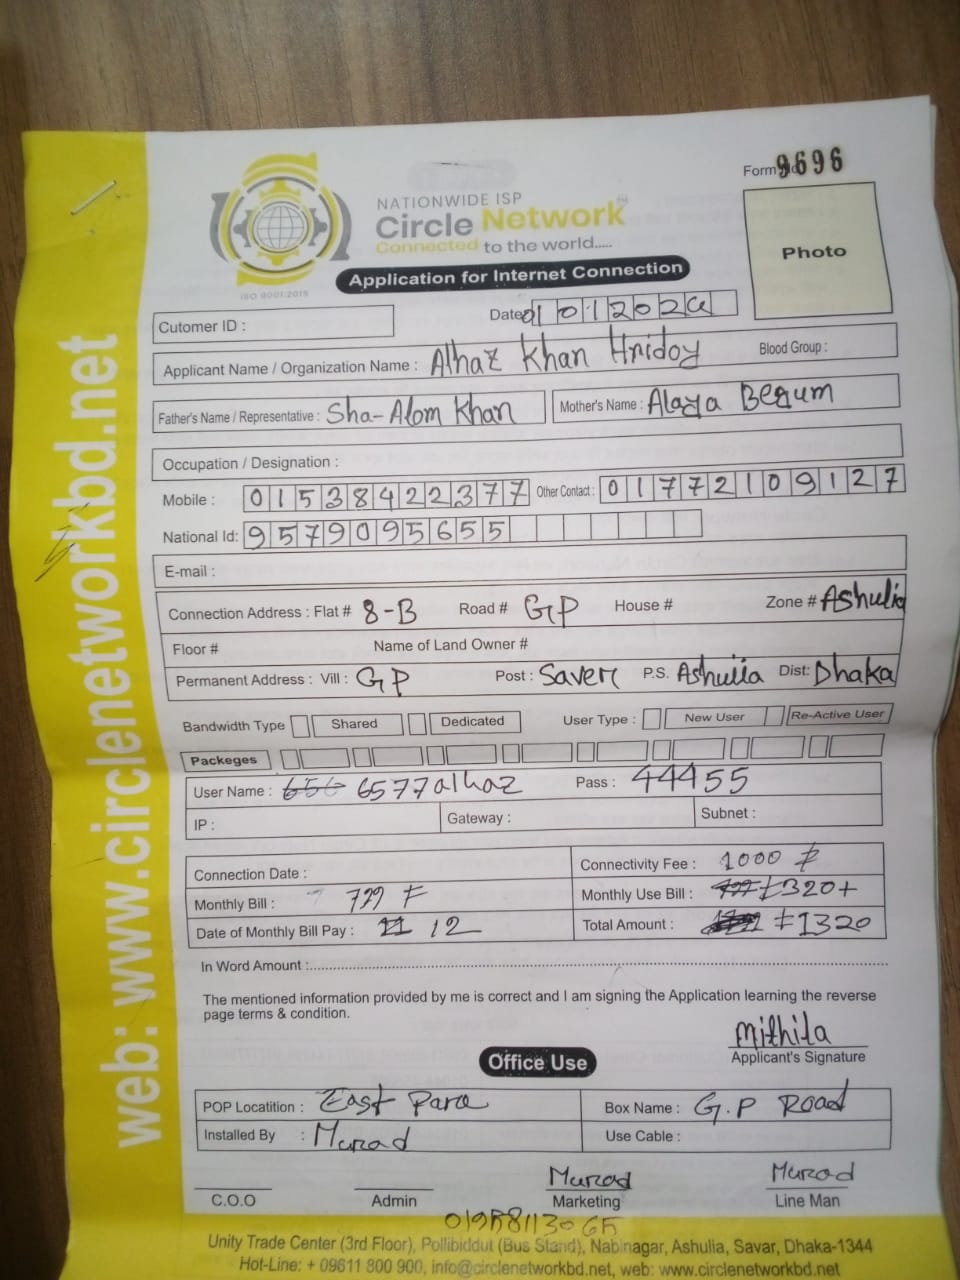 Form 9696
NATIONWIDE ISP
Circle Network
Connected to the world.....
ISO 9001:2015
Application for Internet Connection
Photo
Cutomer ID :
Date 01 01 2024
Applicant Name / Organization Name : Alhaz Khan Hridoy Blood Group :
Father's Name / Representative : Sha-Alom Khan Mother's Name : Alaya Begum
Occupation / Designation :
Mobile : 01538422377 Other Contact : 01772109127
National Id: 9579095655
E-mail :
Connection Address : Flat # 8-B Road # GP House # Zone # Ashulia
Floor # Name of Land Owner #
Permanent Address : Vill : GP Post : Saver P.S. Ashulia Dist: Dhaka
Bandwidth Type Shared Dedicated User Type : New User Re-Active User
Packeges
User Name : 6577alhaz Pass : 44455
IP : Gateway : Subnet :
Connection Date : Connectivity Fee : 1000 ৳
Monthly Bill : 799 ৳ Monthly Use Bill : 320+
Date of Monthly Bill Pay : 12 Total Amount : 1320
In Word Amount :
The mentioned information provided by me is correct and I am signing the Application learning the reverse
page terms & condition.
Mithila
Applicant's Signature
Office Use
POP Locatition : East Para Box Name : G.P Road
Installed By : Murad Use Cable :
Murad Murad
C.O.O Admin Marketing Line Man
Unity Trade Center (3rd Floor), Pollibiddut (Bus Stand), Nabinagar, Ashulia, Savar, Dhaka-1344
Hot-Line: + 09611 800 900, info@circlenetworkbd.net, web: www.circlenetworkbd.net
web: www.circlenetworkbd.net